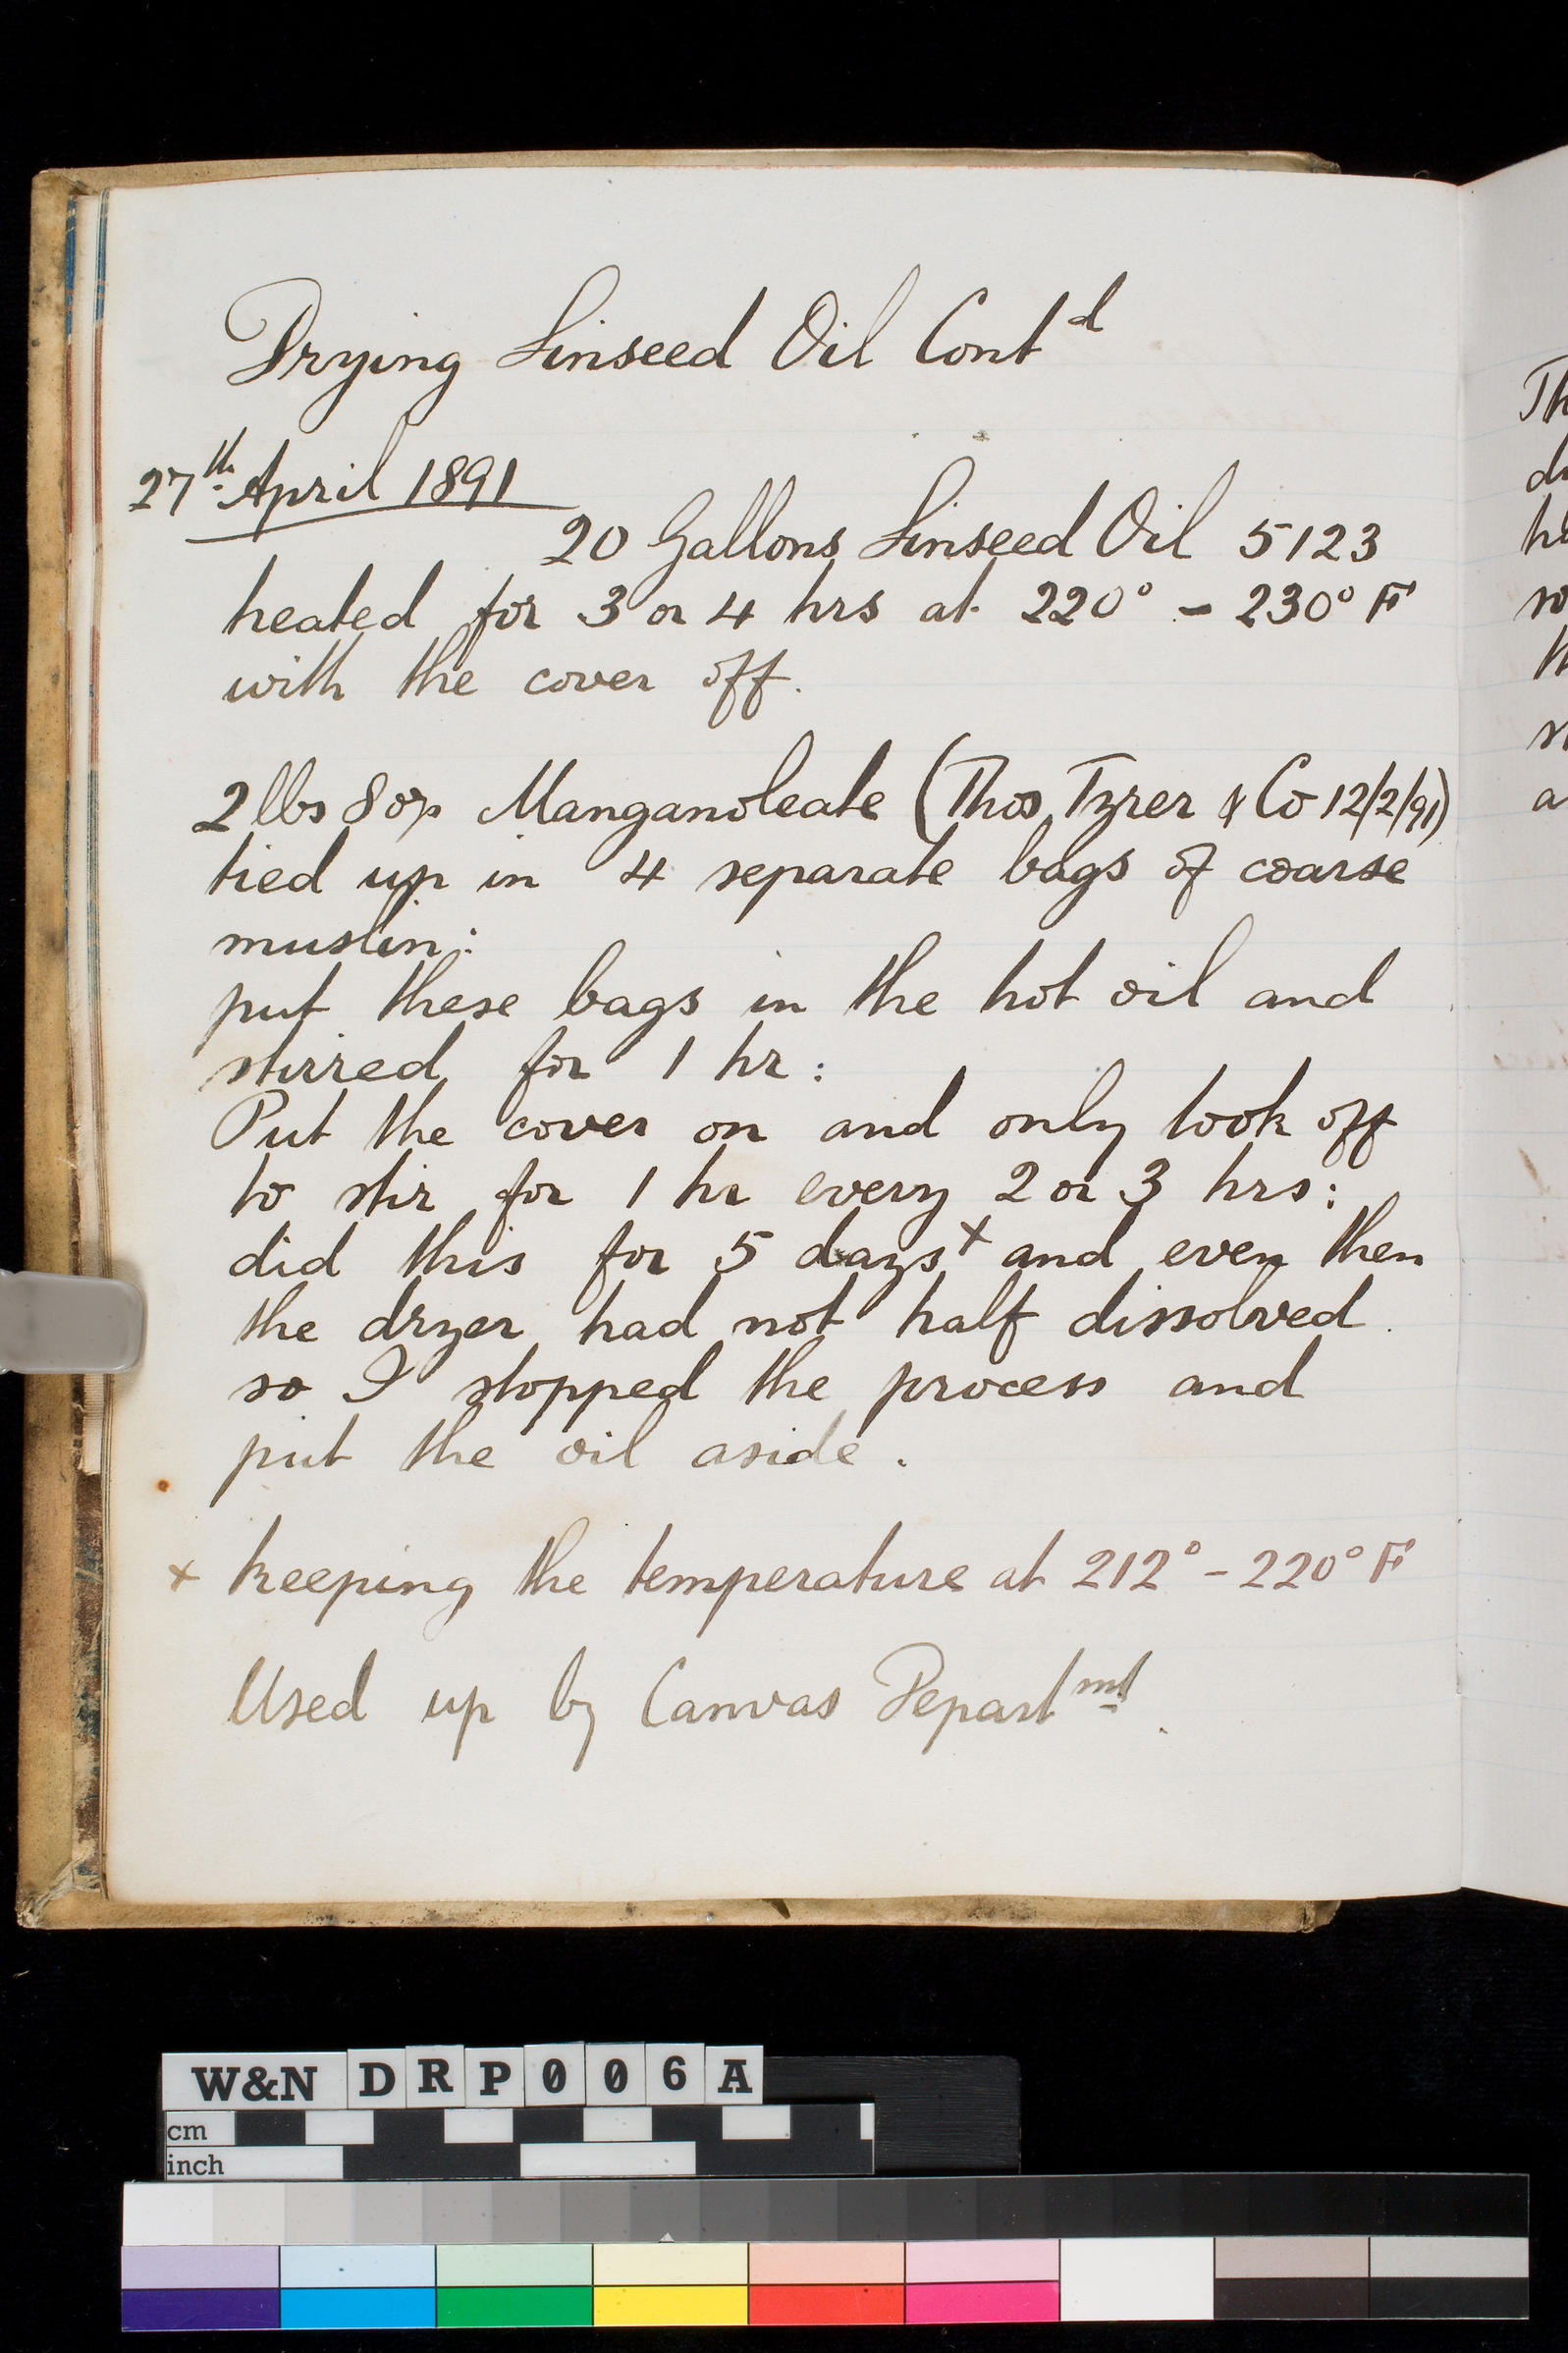 Drying Linseed Oil Contd
27th April 1891
20 Gallons Linseed Oil 5123
heated for 3 or 4 hrs at 220° - 230° F
with the cover off.
2 lbs 8 ozs Manganoleate (Thos Tyrer & Co 12/2/91)
tied up in 4 separate bags of coarse
muslin:
put these bags in the hot oil and
stirred for 1 hr:
Put the cover on and only took off
to stir for 1 hr every 2 or 3 hrs:
did this for 5 days x and even then
the dryer had not half dissolved
so I stopped the process and
put the oil aside.
x keeping the temperature at 212° - 220° F
Used up by Canvas Departmt.
Th
du
so
a
W&N DRP006A
cm
inch